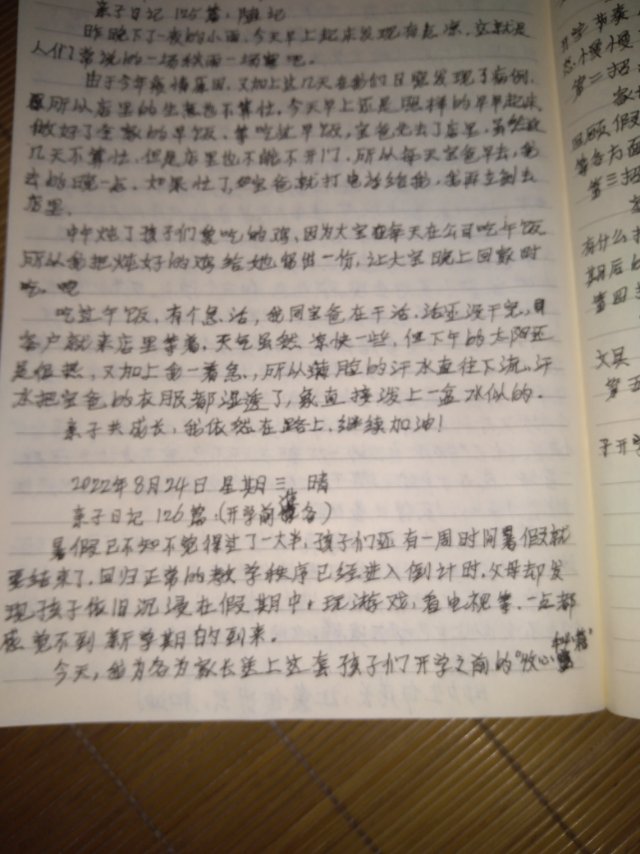 亲子日记 125篇:随记
昨晚下了一夜的小雨,今天早上起来发现有点凉,这就是
人们常说的一场秋雨一场寒吧。
由于今年疫情原因,又加上这几天在我们日照发现了病例,
所以店里的生意也不算忙。今天早上还是照样的早早起床,
做好了全家的早饭,等吃过早饭,宝爸先去了店里,虽然这
几天不算忙,但是店里也不能不开门,所以每天宝爸早去,我
去的晚一点,如果忙了,宝爸就打电话给我,我再立刻去
店里。
中午炖了孩子们爱吃的鸡,因为大宝每天在公司吃午饭
所以我把炖好的鸡给她留做一份,让大宝晚上回家时
吃。
吃过午饭,有个急活,我同宝爸在干活,活还没干完,
客户就来店里等着,天气虽然凉快一些,但下午的太阳还
是很热,又加上我一着急,所以满脸的汗水直往下流,汗
水把宝爸的衣服都湿透了,象直接泼上一盆水似的。
亲子共成长,我依然在路上,继续加油!
2022年8月24日 星期三 晴
亲子日记 126篇:(开学前准备)
暑假已不知不觉得过了一大半,孩子们还有一周时间暑假就
要结束了,回归正常的教学秩序已经进入倒计时,父母却发
现孩子依旧沉浸在假期中,玩游戏,看电视等,一点都
感觉不到新学期的到来。
今天,我为各为家长送上这套孩子们开学之前的"收心秘籍"
开学 节奏
忽慢慢
第二招
回顾假
等各方面
第三招
有什么
期后的
文具
第五
子开学